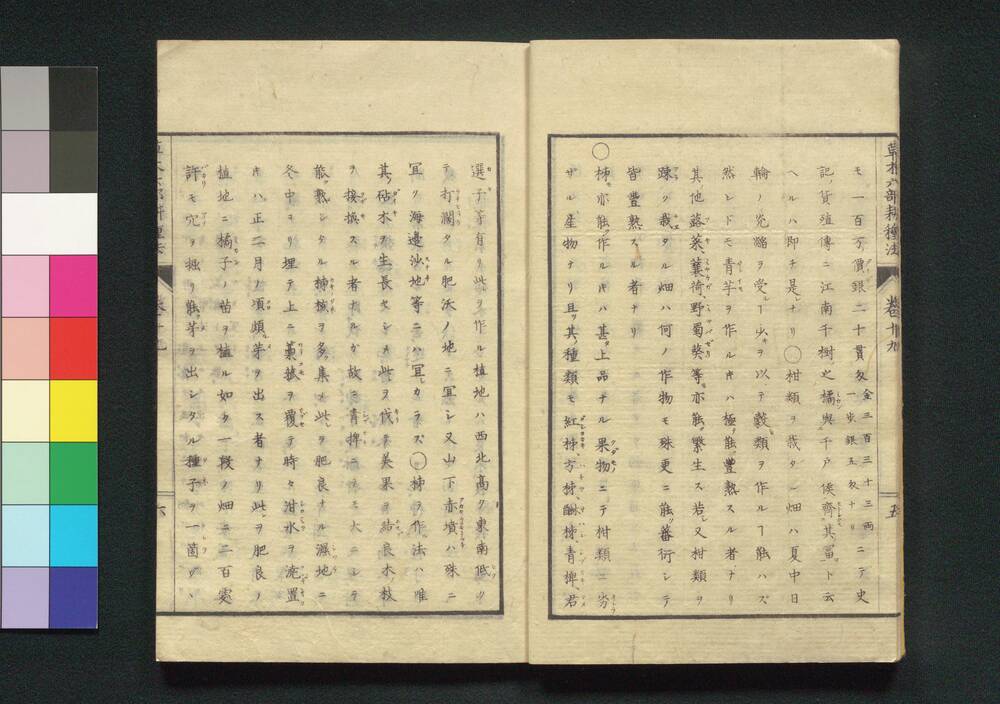 草木六部耕種法 巻十九 五
モ一百万價銀二十貫匁金三百三十三両一歩銀五匁ナリニテ史
記ノ貨殖傳ニ江南千樹之橘與千戸侯齊其富ト云
ヘルハ即チ是レナリ〇柑類ヲ栽タル畑ハ夏中日
輪ノ光ヲ受ルヿ少キヲ以テ穀類ヲ作ルヿ能ハズ
然レドモ青芋ヲ作ルキハ極テ能ク豊熟スル者ナリ
其他蕗菜蘘荷野蜀葵等モ亦能ク繁生ス若シ又柑類ヲ
疎ク栽タル畑ハ何ノ作物モ殊更ニ能ク蕃衍シテ
皆豊熟スル者ナリ
〇柹モ亦能ク作ルキハ甚タ上品ナル果物ニテ柑類ニ劣
ザル産物ナリ且ツ其ノ種類モ紅柹方柹醂柹青椑君
遷子等有リ此ヲ作ル植地ハ西北高ク東南低ク
テ打濶タル肥沃ノ地ニ宜シ又山下赤墳ハ殊ニ
宜ク海邊沙地等ニハ宜カラズ〇柹ヲ作ル法ハ唯
其ノ砧木ヲ生長セシメ此ヲ伐テ美果ヲ結ブ良木ノ枝
ヲ接換スル者ナルガ故ニ青椑ニテモ大ニシテ
能ク熟シタル柹核ヲ多ク集メ此ヲ肥良ナル濕地ニ
冬中ヨリ埋テ上ニ藁菰ヲ覆テ時々泔水ヲ澆置
キハ正二月ノ頃頻ニ芽ヲ出ス者ナリ此ヲ肥良ノ
植地ニ橘子ノ苗ヲ植ル如ク一段ノ畑ニ二百處
許モ穴ヲ掘リ能ク芽ヲ出シタル種子ヲ一箇ヅヽ
巻十九 六